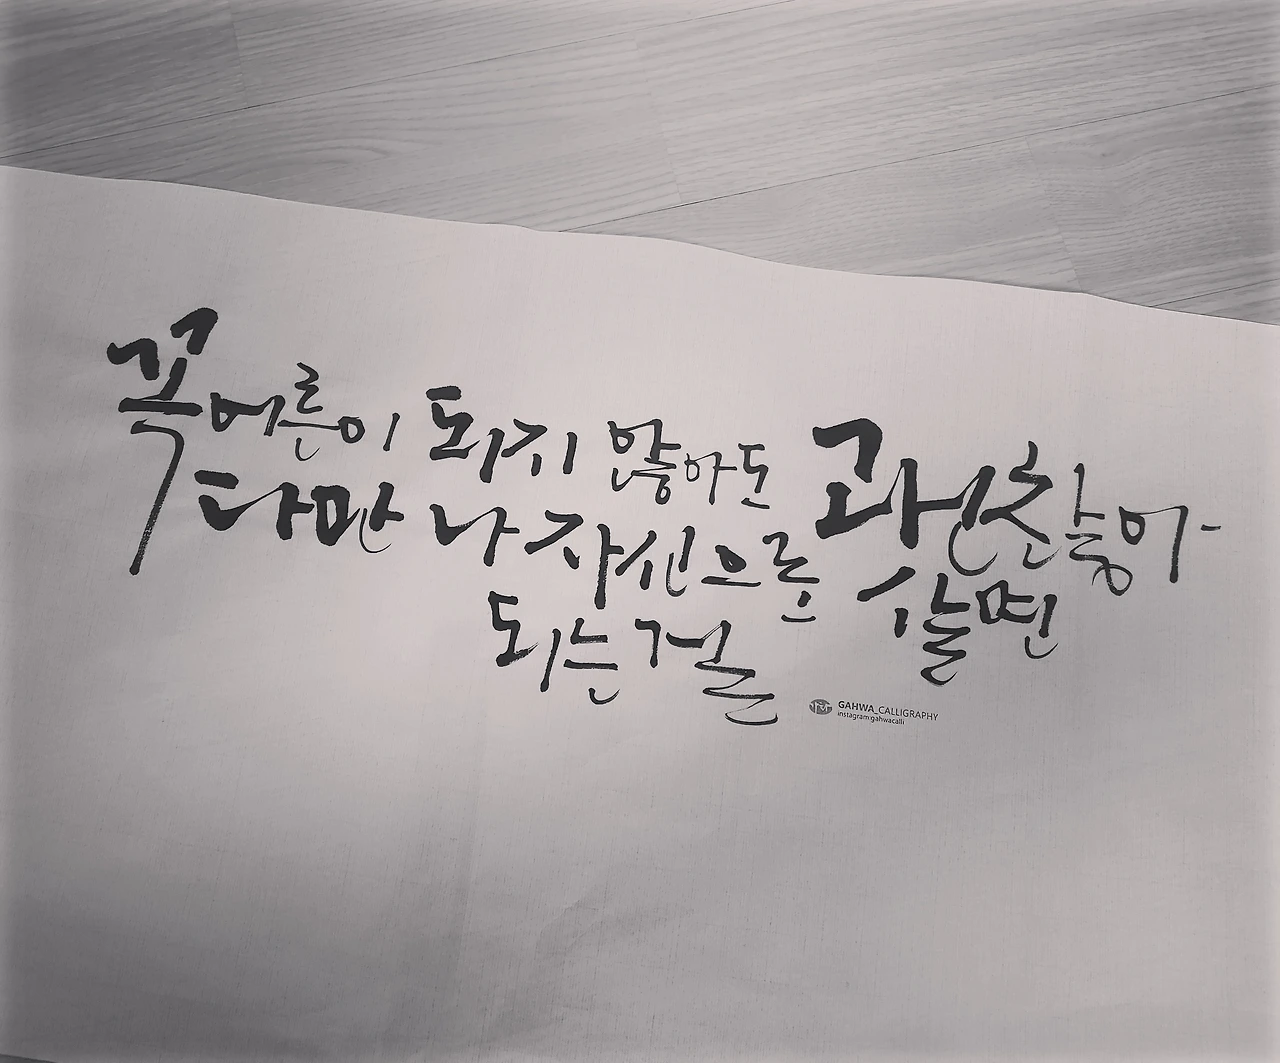 꼭 어른이 되지 않아도 괜찮아
다만 나 자신으로 살면
되는 걸
GAHWA_CALLIGRAPHY
instagram:gahwacalli